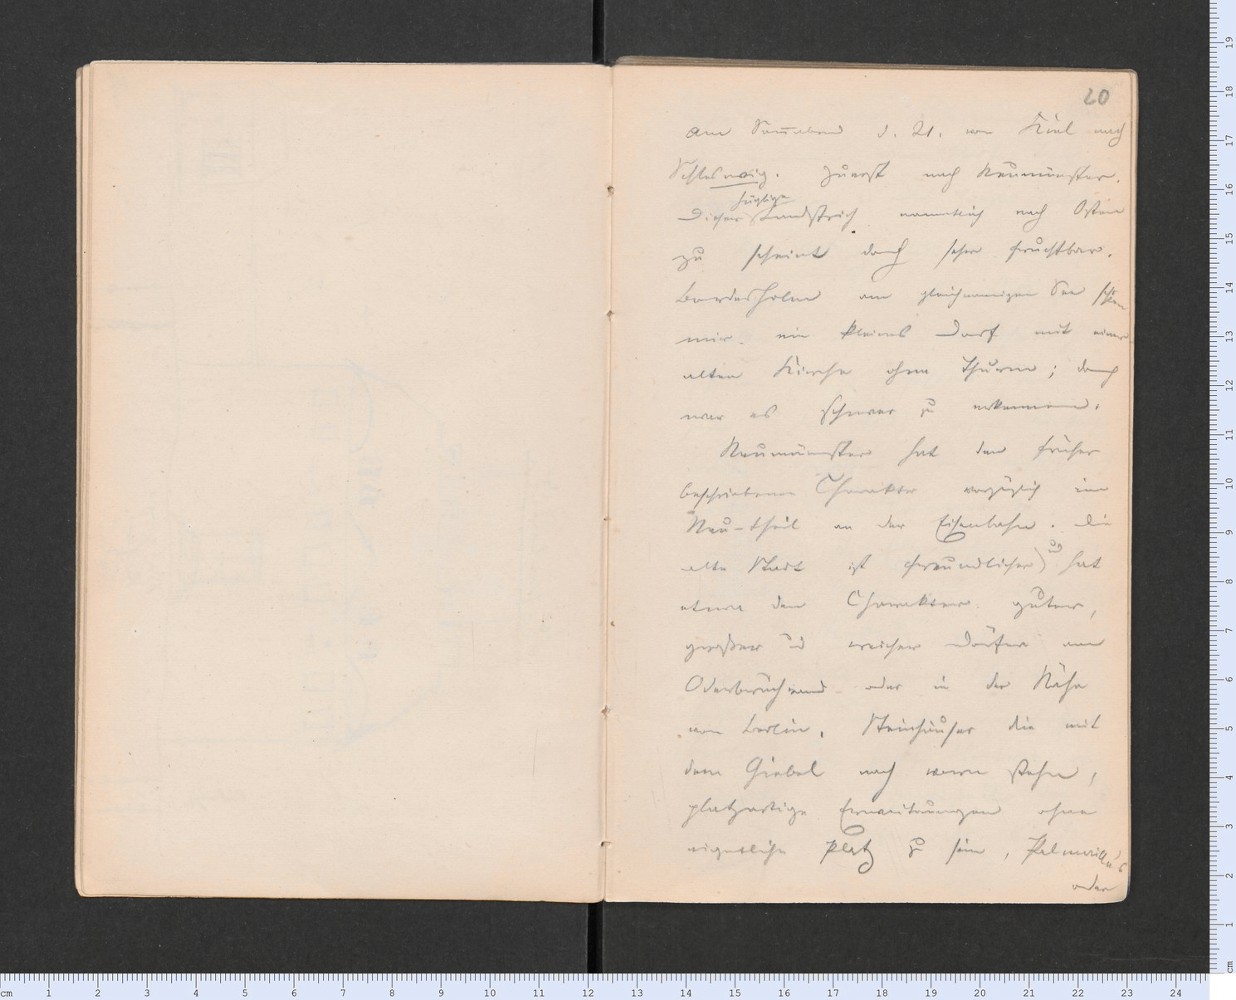 20
Am Sonnabend d. 21. von Kiel nach
Schleswig. Zuerst nach Neumünster.
hüglige
Dieser Landstrich namentlich nach Osten
zu scheint doch sehr fruchtbar.
Bordesholm am gleichnamigen See schien
mir ein kleines Dorf mit einer
alten Kirche ohne Thurm; doch
war es schwer zu erkennen.
Neumünster hat den früher
beschriebenen Charakter vorzüglich im
Neu-theil an der Eisenbahn. Die
alte Stadt ist freundlicher) und hat
etwa den Charakter guter,
großer und reicher Dörfer am
Oderbruch oder in der Nähe
von Berlin. Steinhäuser die mit
dem Giebel nach vorn stehn,
platzartige Erweiterungen ohne
eigentliche Platz zu sein,
oder